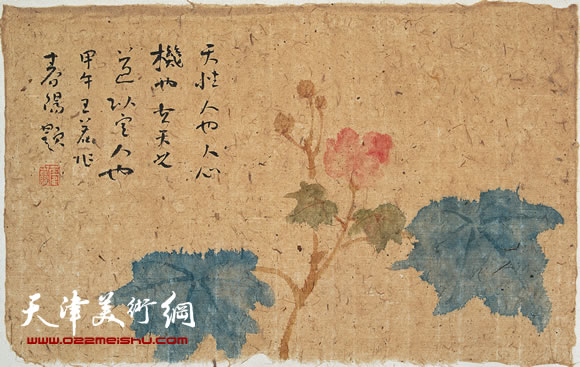 天性人也人心
機也立天之
道以定人也
甲午王若作
春陽題
天津美術網
www.022meishu.com